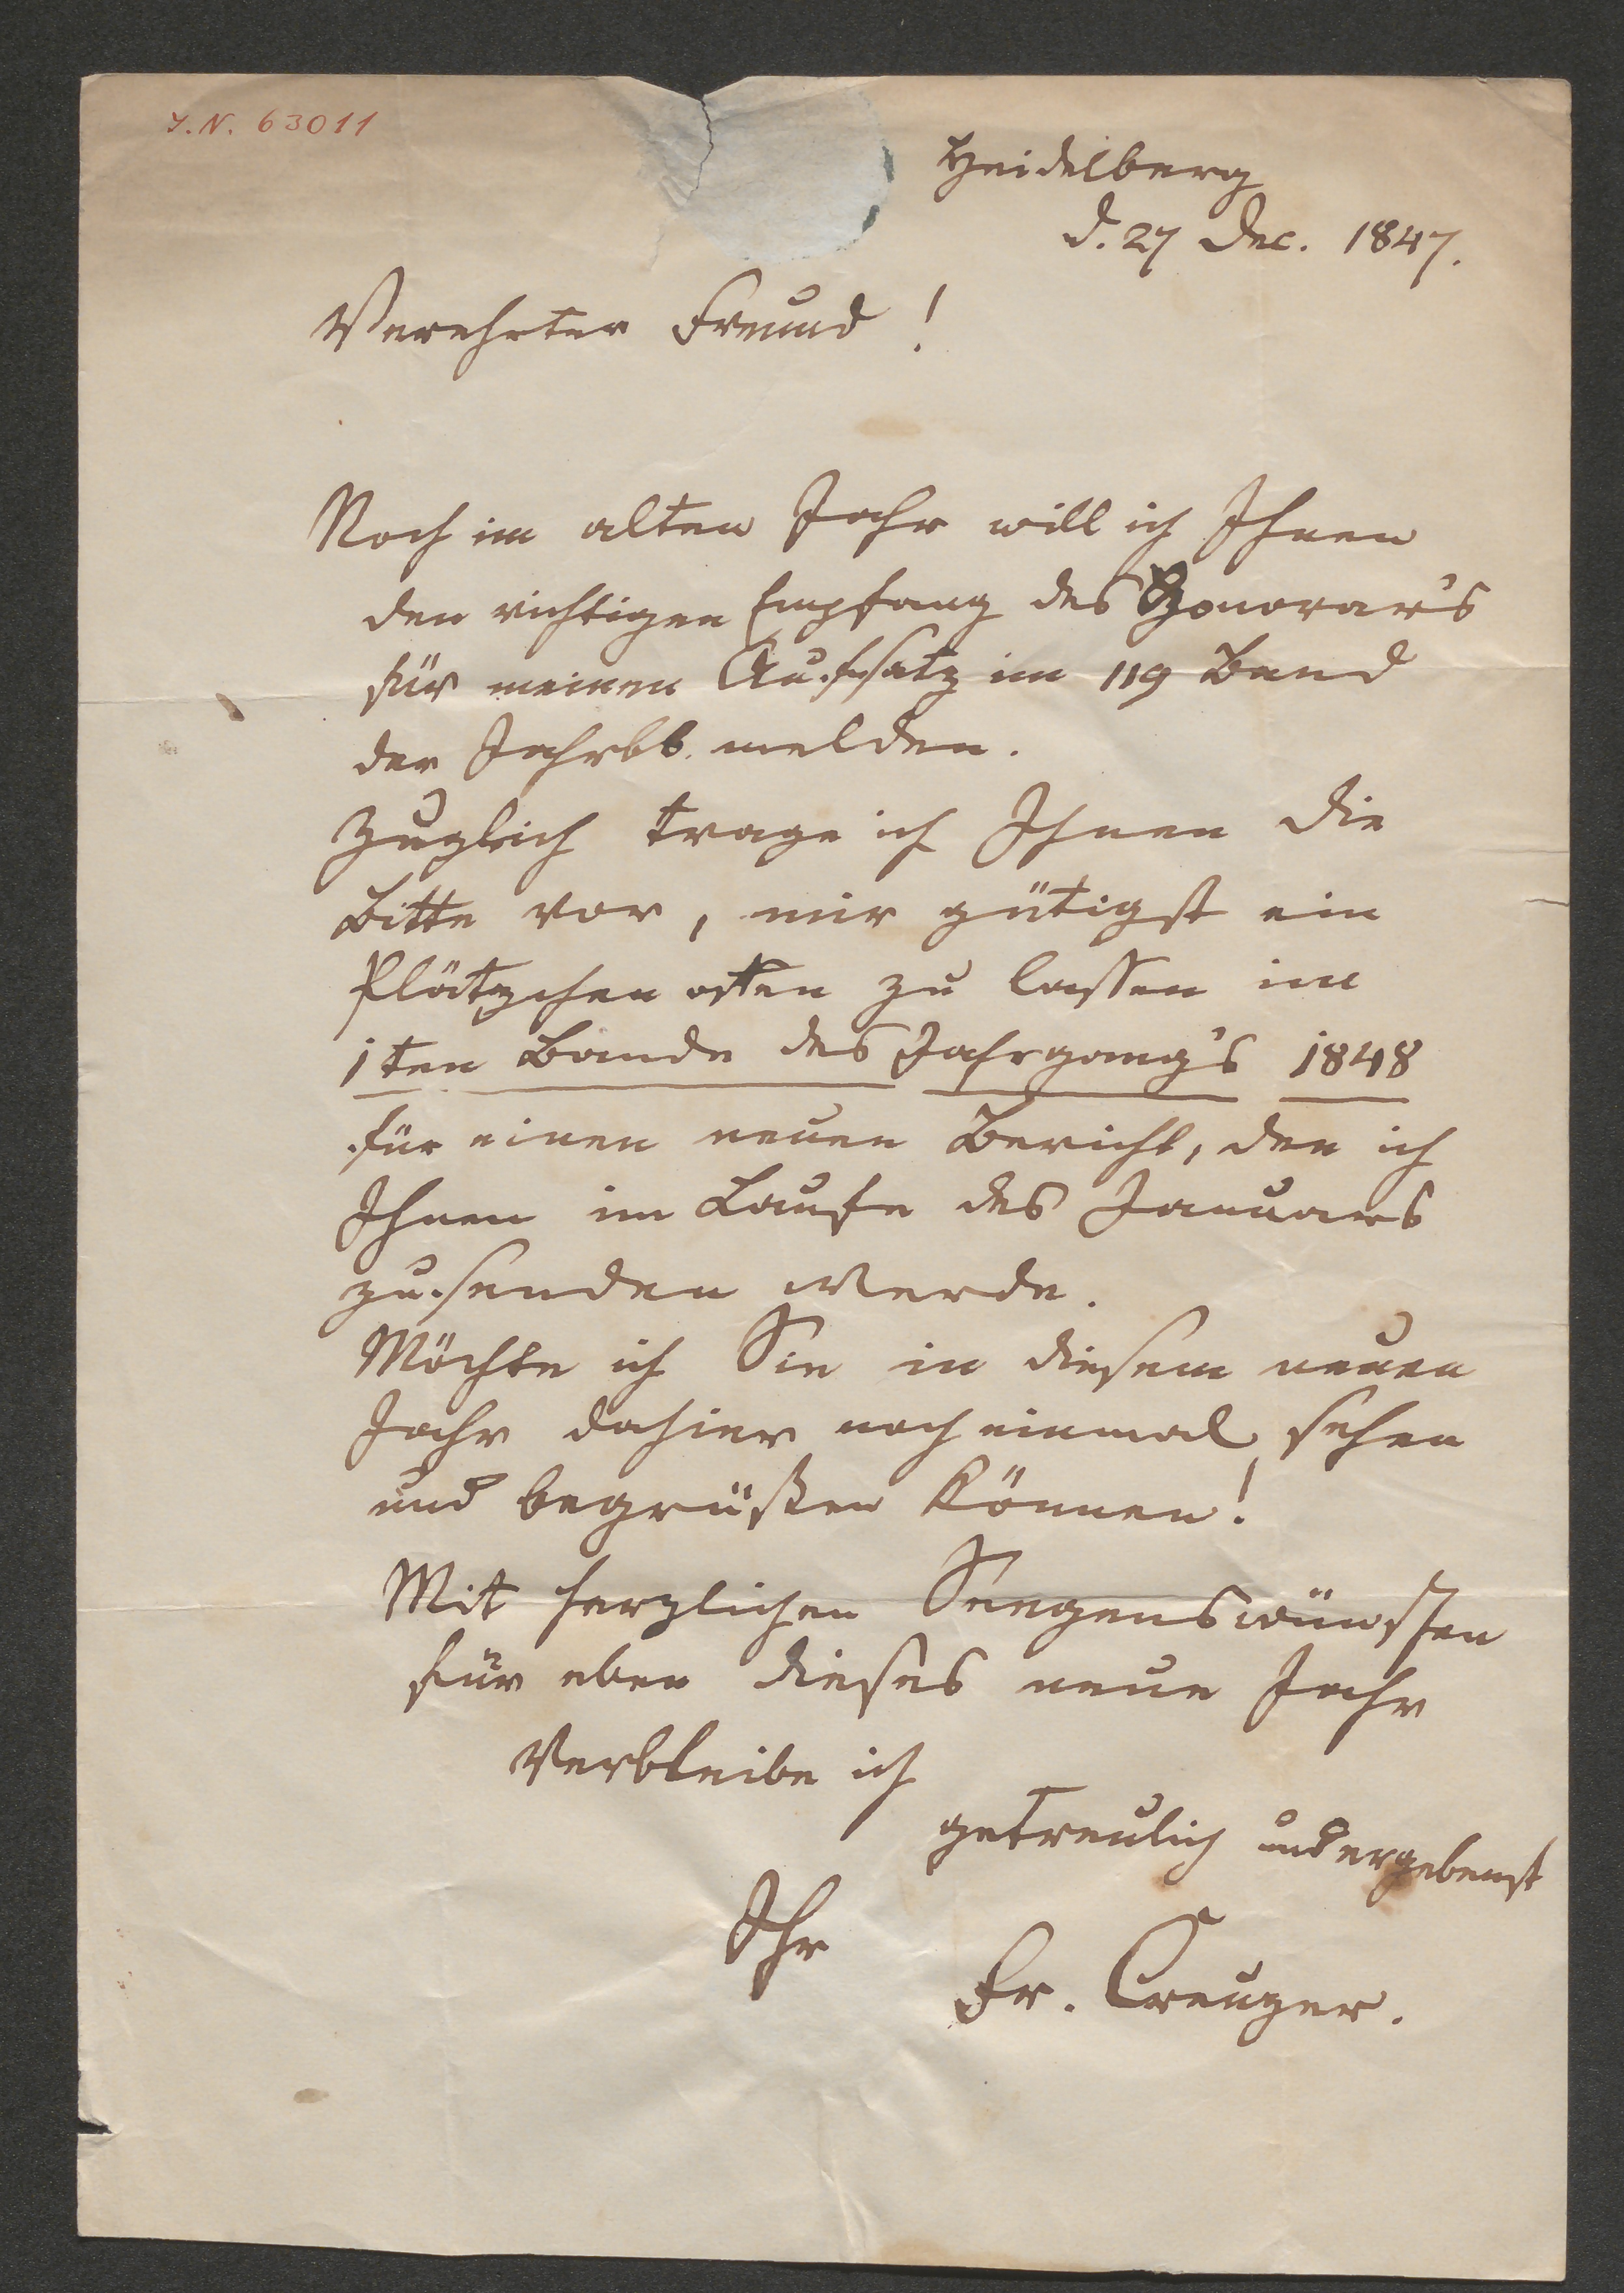 I.N. 63011
Heidelberg
d. 27 Dec. 1847.
Verehrter Freund!
Noch im alten Jahr will ich Ihnen
den richtigen Empfang des Honorar's
für meinen Aufsatz im 119 Band
der Jahrbb. melden.
Zugleich trage ich Ihnen die
Bitte vor, mir gütigst ein
Plätzchen offen zu lassen im
1ten Bande des Jahrgang's 1848
für einen neuen Bericht, den ich
Ihnen im Laufe des Januars
zusenden werde.
Möchte ich Sie in diesem neuen
Jahr dahier noch einmal sehen
und begrüßen können!
Mit herzlichen Seegenswünschen
für eben dieses neue Jahr
verbleibe ich
getreulich und ergebenst
Ihr
Fr. Creuzer.